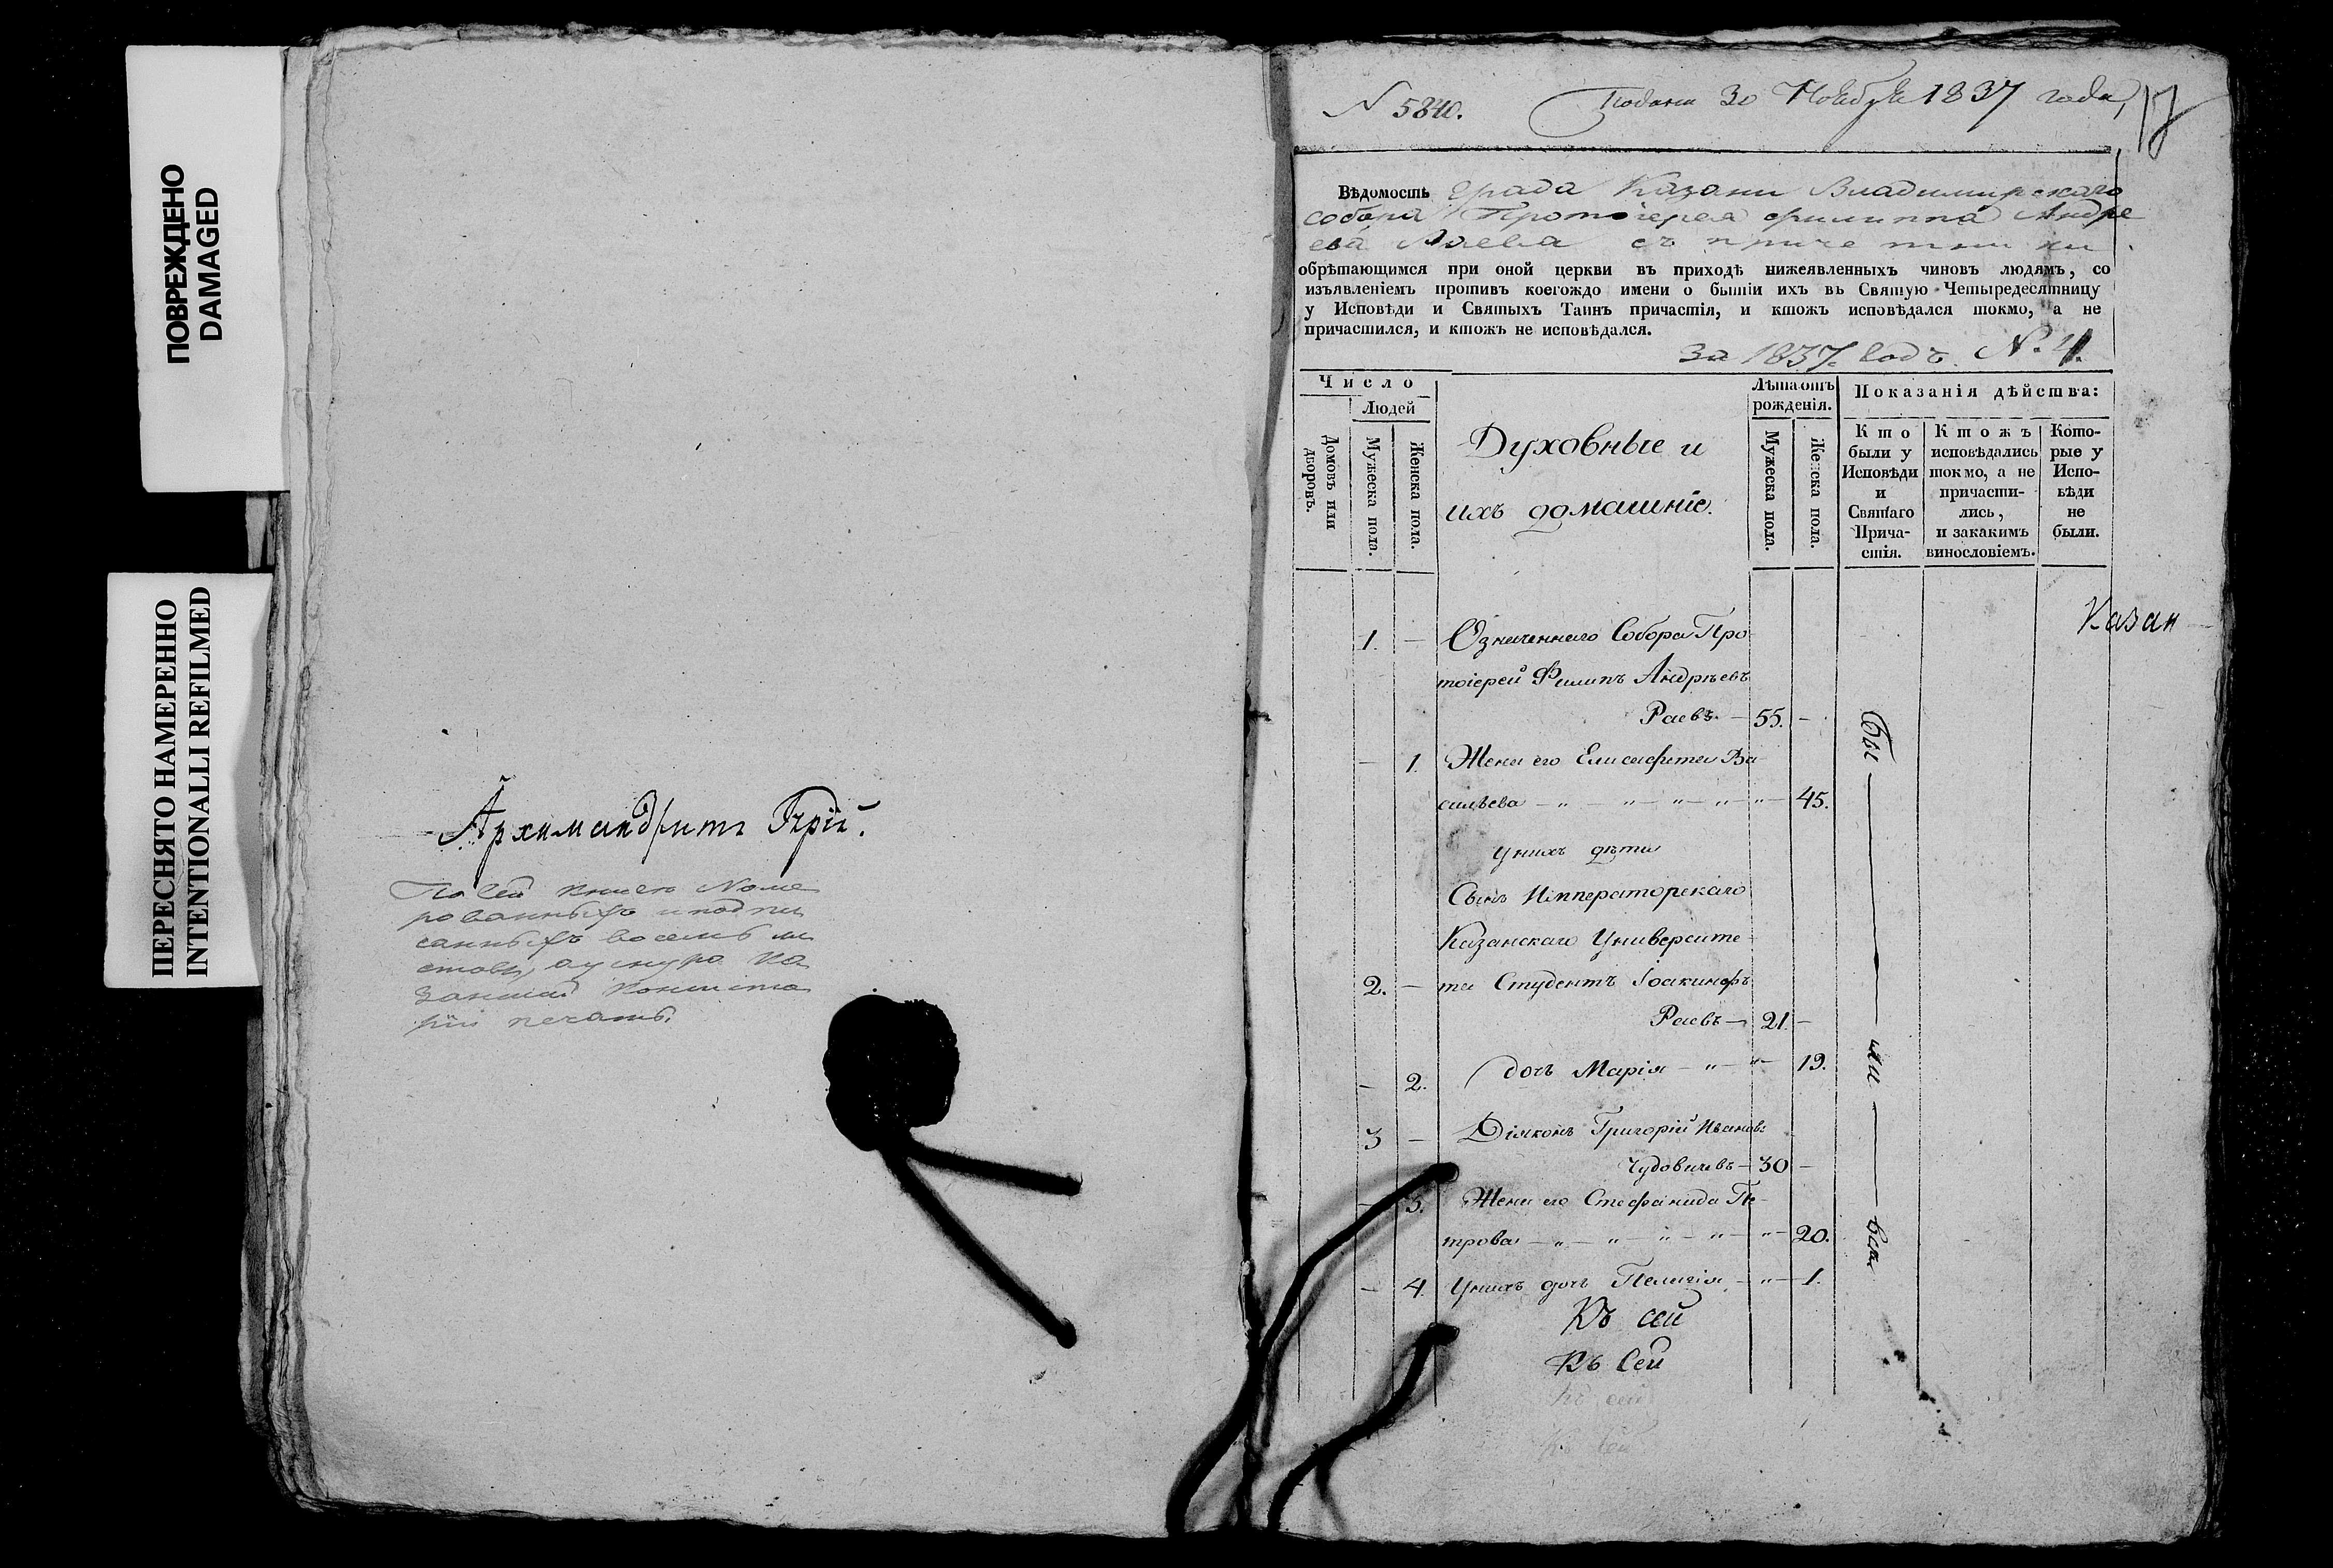 ПОВРЕЖДЕНО
DAMAGED
ПЕРЕСНЯТО НАМЕРЕННО
INTENTIONALLI REFILMED
Архимандритъ Гурій.
По сей книге Номе
рованныхъ и подпи
санныхъ восемь ли
стовъ, а у снура Ка
занской Консисто
ріи печать.
N 5840. Подана 30 Ноября 1837 года,
17
Вѣдомость града Казани Владимирскаго
собора Протоіерея Филиппа Андре
ева Раева съ причетники
обрѣтающимся при оной церкви въ приходѣ нижеявленныхъ чиновъ людямъ, со
изъявленіемъ противъ коегождо имени о бытіи ихъ въ Святую Четыредесятницу
у Исповѣди и Святыхъ Таинъ причастія, и ктожъ исповѣдался токмо, а не
причастился, и ктожъ не исповѣдался.
За 1837. годъ. N. 4.
Число
Людей
Домовъ или дворовъ.
Мужеска пола.
Женска пола.
Духовные и
ихъ домашніе.
Лѣта отъ
рожденія.
Мужеска пола.
Женска пола.
Показанія дѣйства:
Кто
были у
Исповѣди
и
Святаго
Прича-
стія.
Ктожъ
исповѣдались
токмо, а не
причасти-
лись,
и за какимъ
винословіемъ.
Кото-
рые у
Испо-
вѣди
не
были.
Казан
1. — Означеннаго Собора Про
тоіерей Филипъ Андрѣевъ
Раевъ — 55. —
— 1. Жена его Елисавета Ва
сильева — „ — „ — „ — „ — „ — 45.
У нихъ дѣти
Сынъ Императорскаго
Казанскаго Университе
2. — та Студентъ Іоакинфъ
Раевъ — 21. —
— 2. дочь Марія — „ — „ — 19.
3 — Діяконъ Григорій Ивановъ
Чудовичевъ — 30 —
— 3. Жена его Стефанида Пе-
трова — „ — „ — „ — „ — „ — 20.
— 4. У нихъ дочь Пелагія — „ — 1.
Бы — ли — всѣ
Къ сей
Къ сей
Къ сей
Къ сей